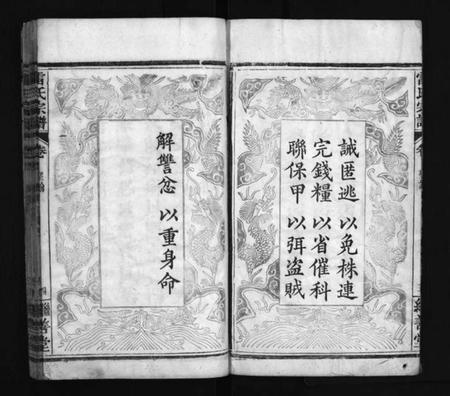 誡匿逃以免株連
完錢糧以省催科
聯保甲以弭盜賊
解讐忿以重身命
雷氏宗譜
卷
善堂